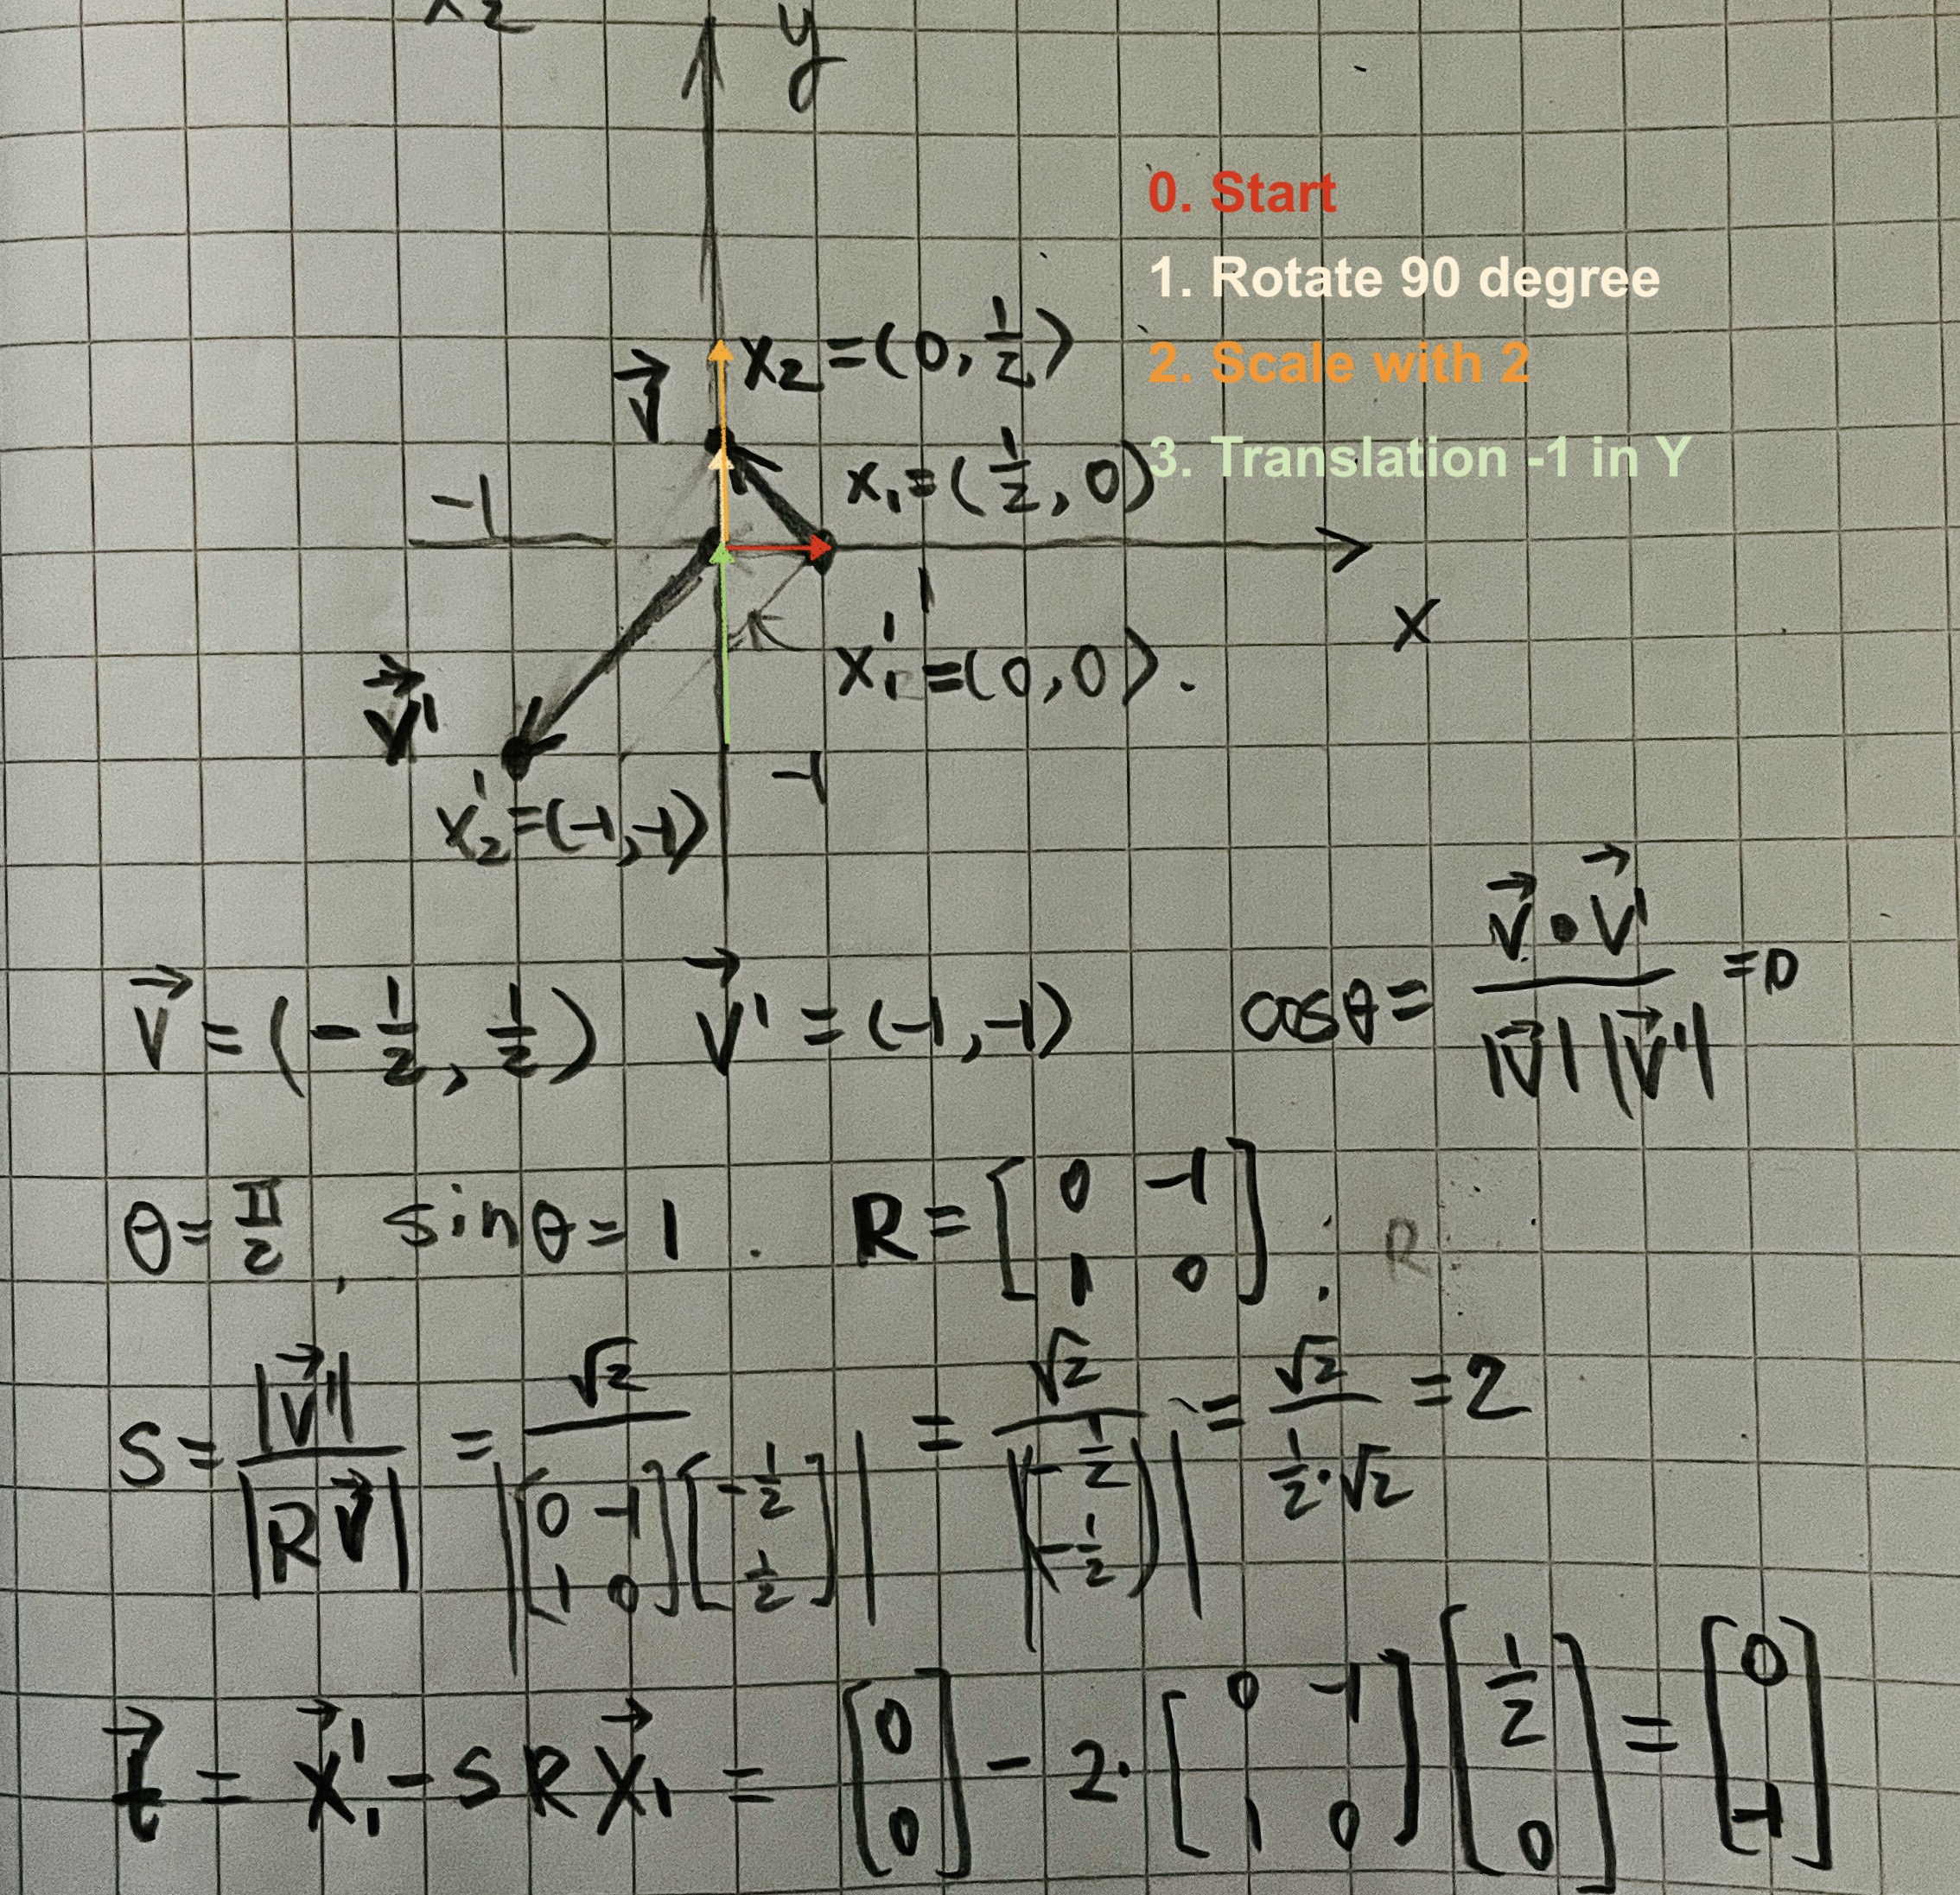 x₂
y
0. Start
1. Rotate 90 degree
x₂ = (0, 1/2)
2. Scale with 2
v⃗
x₁ = (1/2, 0)
3. Translation -1 in Y
-1
1
x
x₁' = (0,0).
v⃗'
-1
x₂' = (-1,-1)
v⃗ = (-1/2, 1/2) v⃗' = (-1,-1) cosθ = (v⃗ • v⃗')/(|v⃗| |v⃗'|) = 0
θ = π/2, sinθ = 1. R = [0 -1; 1 0]. R
S = |v⃗'|/|R v⃗| = √2/|[0 -1; 1 0][-1/2; 1/2]| = √2/|(-1/2; -1/2)| = √2/(1/2·√2) = 2
t⃗ = x⃗₁' - S R x⃗₁ = [0; 0] - 2·[0 -1; 1 0][1/2; 0] = [0; -1]